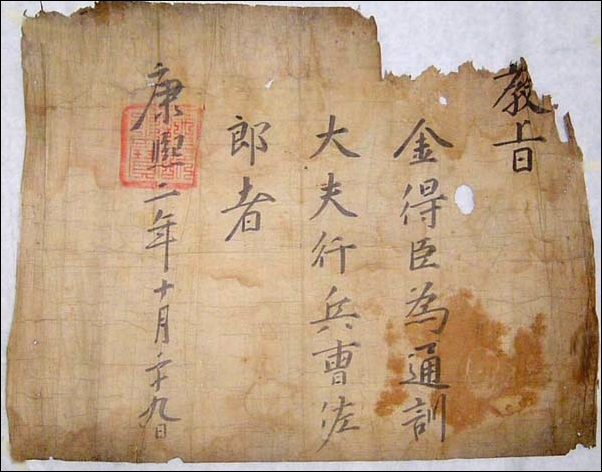 教旨
金得臣為通訓
大夫行兵曺佐
郎者
康熙二年十月二十九日